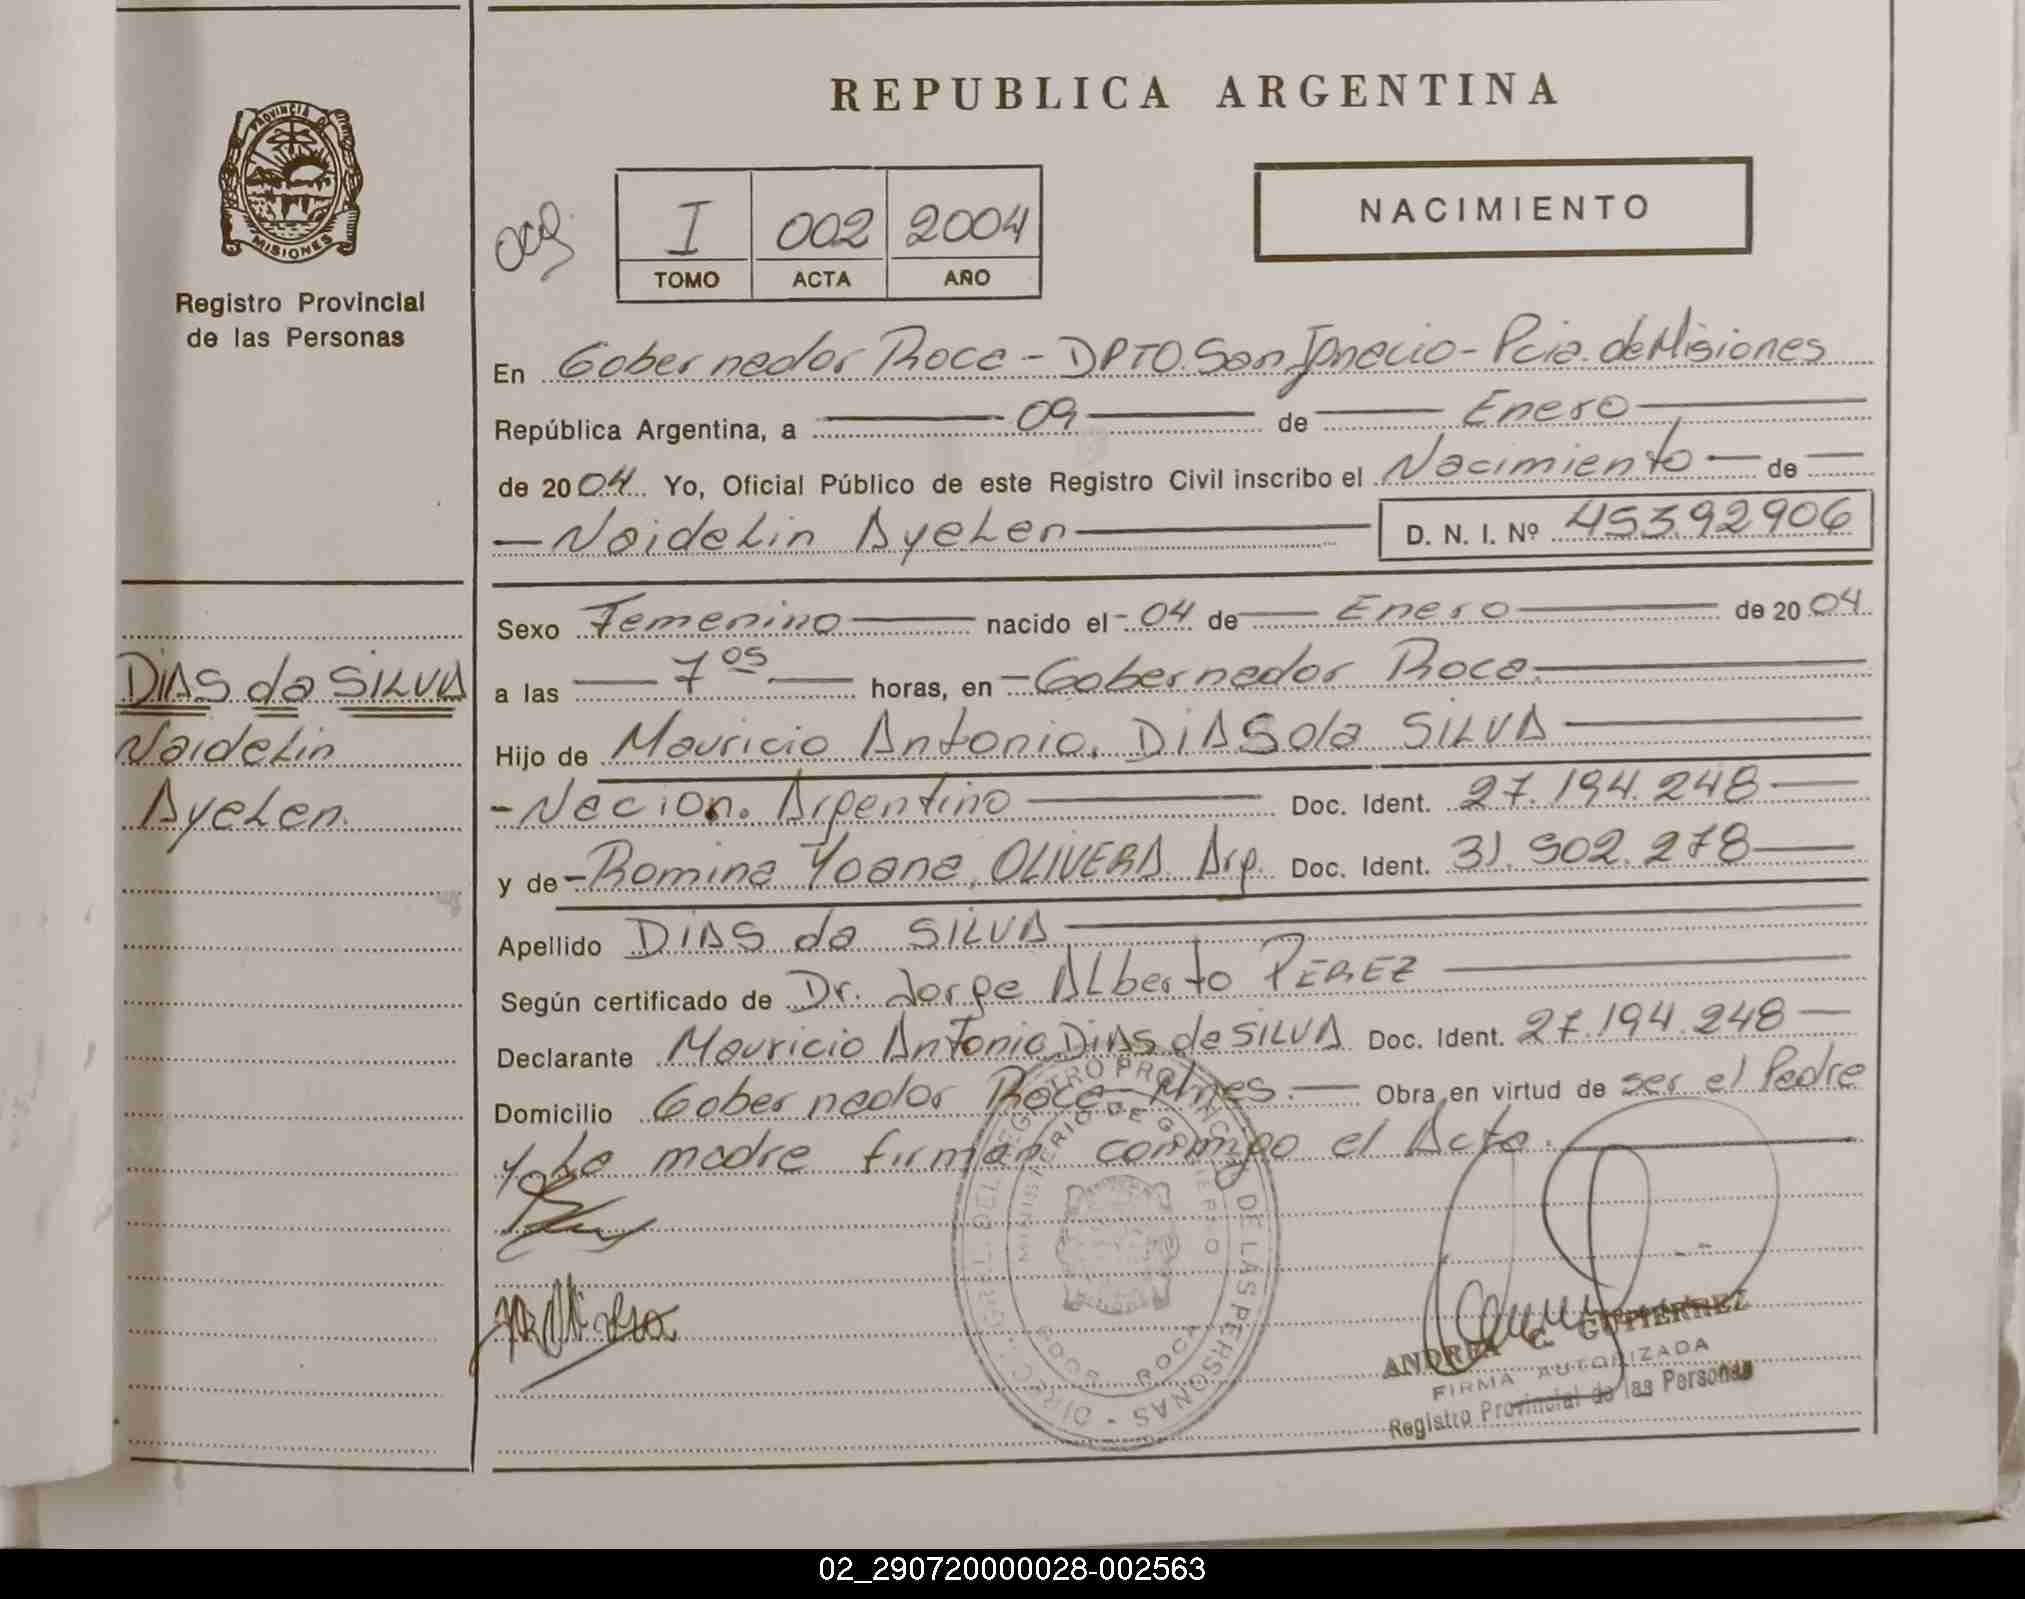 PROVINCIA DE
MISIONES
Registro Provincial
de las Personas
DIAS da SILVA
Naidelin
Ayelen.
REPUBLICA ARGENTINA
I 002 2004
TOMO ACTA AÑO
NACIMIENTO
En Gobernador Roca - DPTO. San Ignacio - Pcia. de Misiones
República Argentina, a 09 de Enero
de 2004 Yo, Oficial Público de este Registro Civil inscribo el Nacimiento de
Naidelin Ayelen D. N. I. Nº 45392906
Sexo Femenino nacido el 04 de Enero de 2004
a las 7 05 horas, en Gobernador Roca.
Hijo de Mauricio Antonio, DIAS da SILVA
- Nacion. Argentino Doc. Ident. 27.194.248
y de - Romina Yoana, OLIVERA Arg. Doc. Ident. 31.902.278
Apellido DIAS da SILVA
Según certificado de Dr. Jorge Alberto PEREZ
Declarante Mauricio Antonio Dias da SILVA Doc. Ident. 27.194.248
Domicilio Gobernador Roca - Mnes. Obra en virtud de ser el Padre
y La madre firman conmigo el Acta.
DIREC. GRAL. DEL REGISTRO PROVINCIAL DE LAS PERSONAS
MINISTERIO DE GOBIERNO
GDOR. ROCA
ANDREA C. GUTIERREZ
FIRMA AUTORIZADA
Registro Provincial de las Personas
02_290720000028-002563